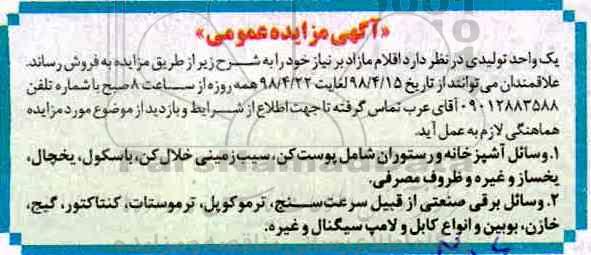 «آگهی مزایده عمومی»
یک واحد تولیدی در نظر دارد اقلام مازاد بر نیاز خود را به شرح زیر از طریق مزایده به فروش رساند.
علاقمندان می توانند از تاریخ ۹۸/۴/۱۵ لغایت ۹۸/۴/۲۲ همه روزه از ساعت ۸ صبح با شماره تلفن
۰۹۰۱۲۸۸۳۵۸۸ آقای عرب تماس گرفته تا جهت اطلاع از شرایط و بازدید از موضوع مورد مزایده
هماهنگی لازم به عمل آید.
۱. وسائل آشپزخانه و رستوران شامل پوست کن، سیب زمینی خلال کن، باسکول، یخچال،
یخساز و غیره و ظروف مصرفی.
۲. وسائل برقی صنعتی از قبیل سرعت سنج، ترموکوپل، ترموستات، کنتاکتور، گیج،
خازن، بوبین و انواع کابل و لامپ سیگنال و غیره.